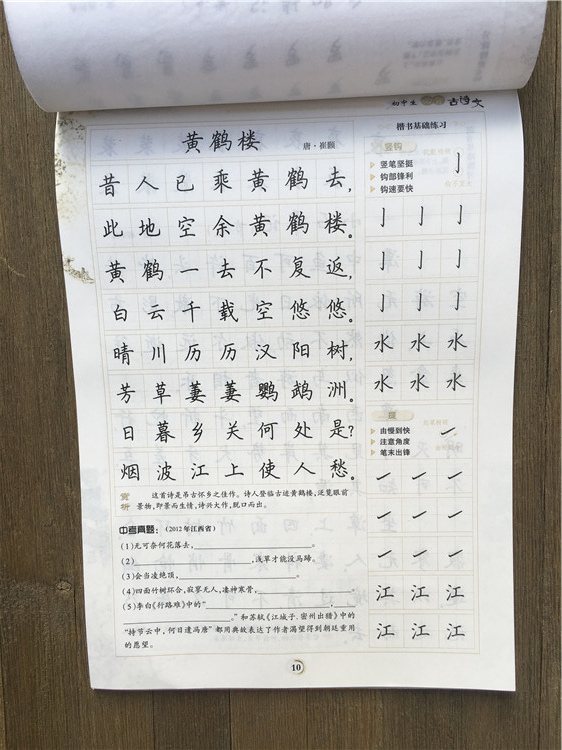 初中生必背古诗文
黄鹤楼 唐·崔颢
昔人已乘黄鹤去，
此地空余黄鹤楼。
黄鹤一去不复返，
白云千载空悠悠。
晴川历历汉阳树，
芳草萋萋鹦鹉洲。
日暮乡关何处是？
烟波江上使人愁。
赏析
这首诗是吊古怀乡之佳作。诗人登临古迹黄鹤楼，泛览眼前
景物，即景而生情，诗兴大作，脱口而出。
中考真题：（2012年江西省）
(1)无可奈何花落去，
(2) ，浅草才能没马蹄。
(3)会当凌绝顶，
(4)四面竹树环合，寂寥无人，凄神寒骨，
(5)李白《行路难》中的“
。”和苏轼《江城子·密州出猎》中的
“持节云中，何日遣冯唐”都用典故表达了作者渴望得到朝廷重用
的愿望。
楷书基础练习
竖钩
竖笔坚挺
钩部锋利
钩速要快
亅
亅 亅 亅
亅 亅 亅
水 水 水
水 水 水
提
由慢到快
注意角度
笔末出锋
江 江 江
江 江 江
10